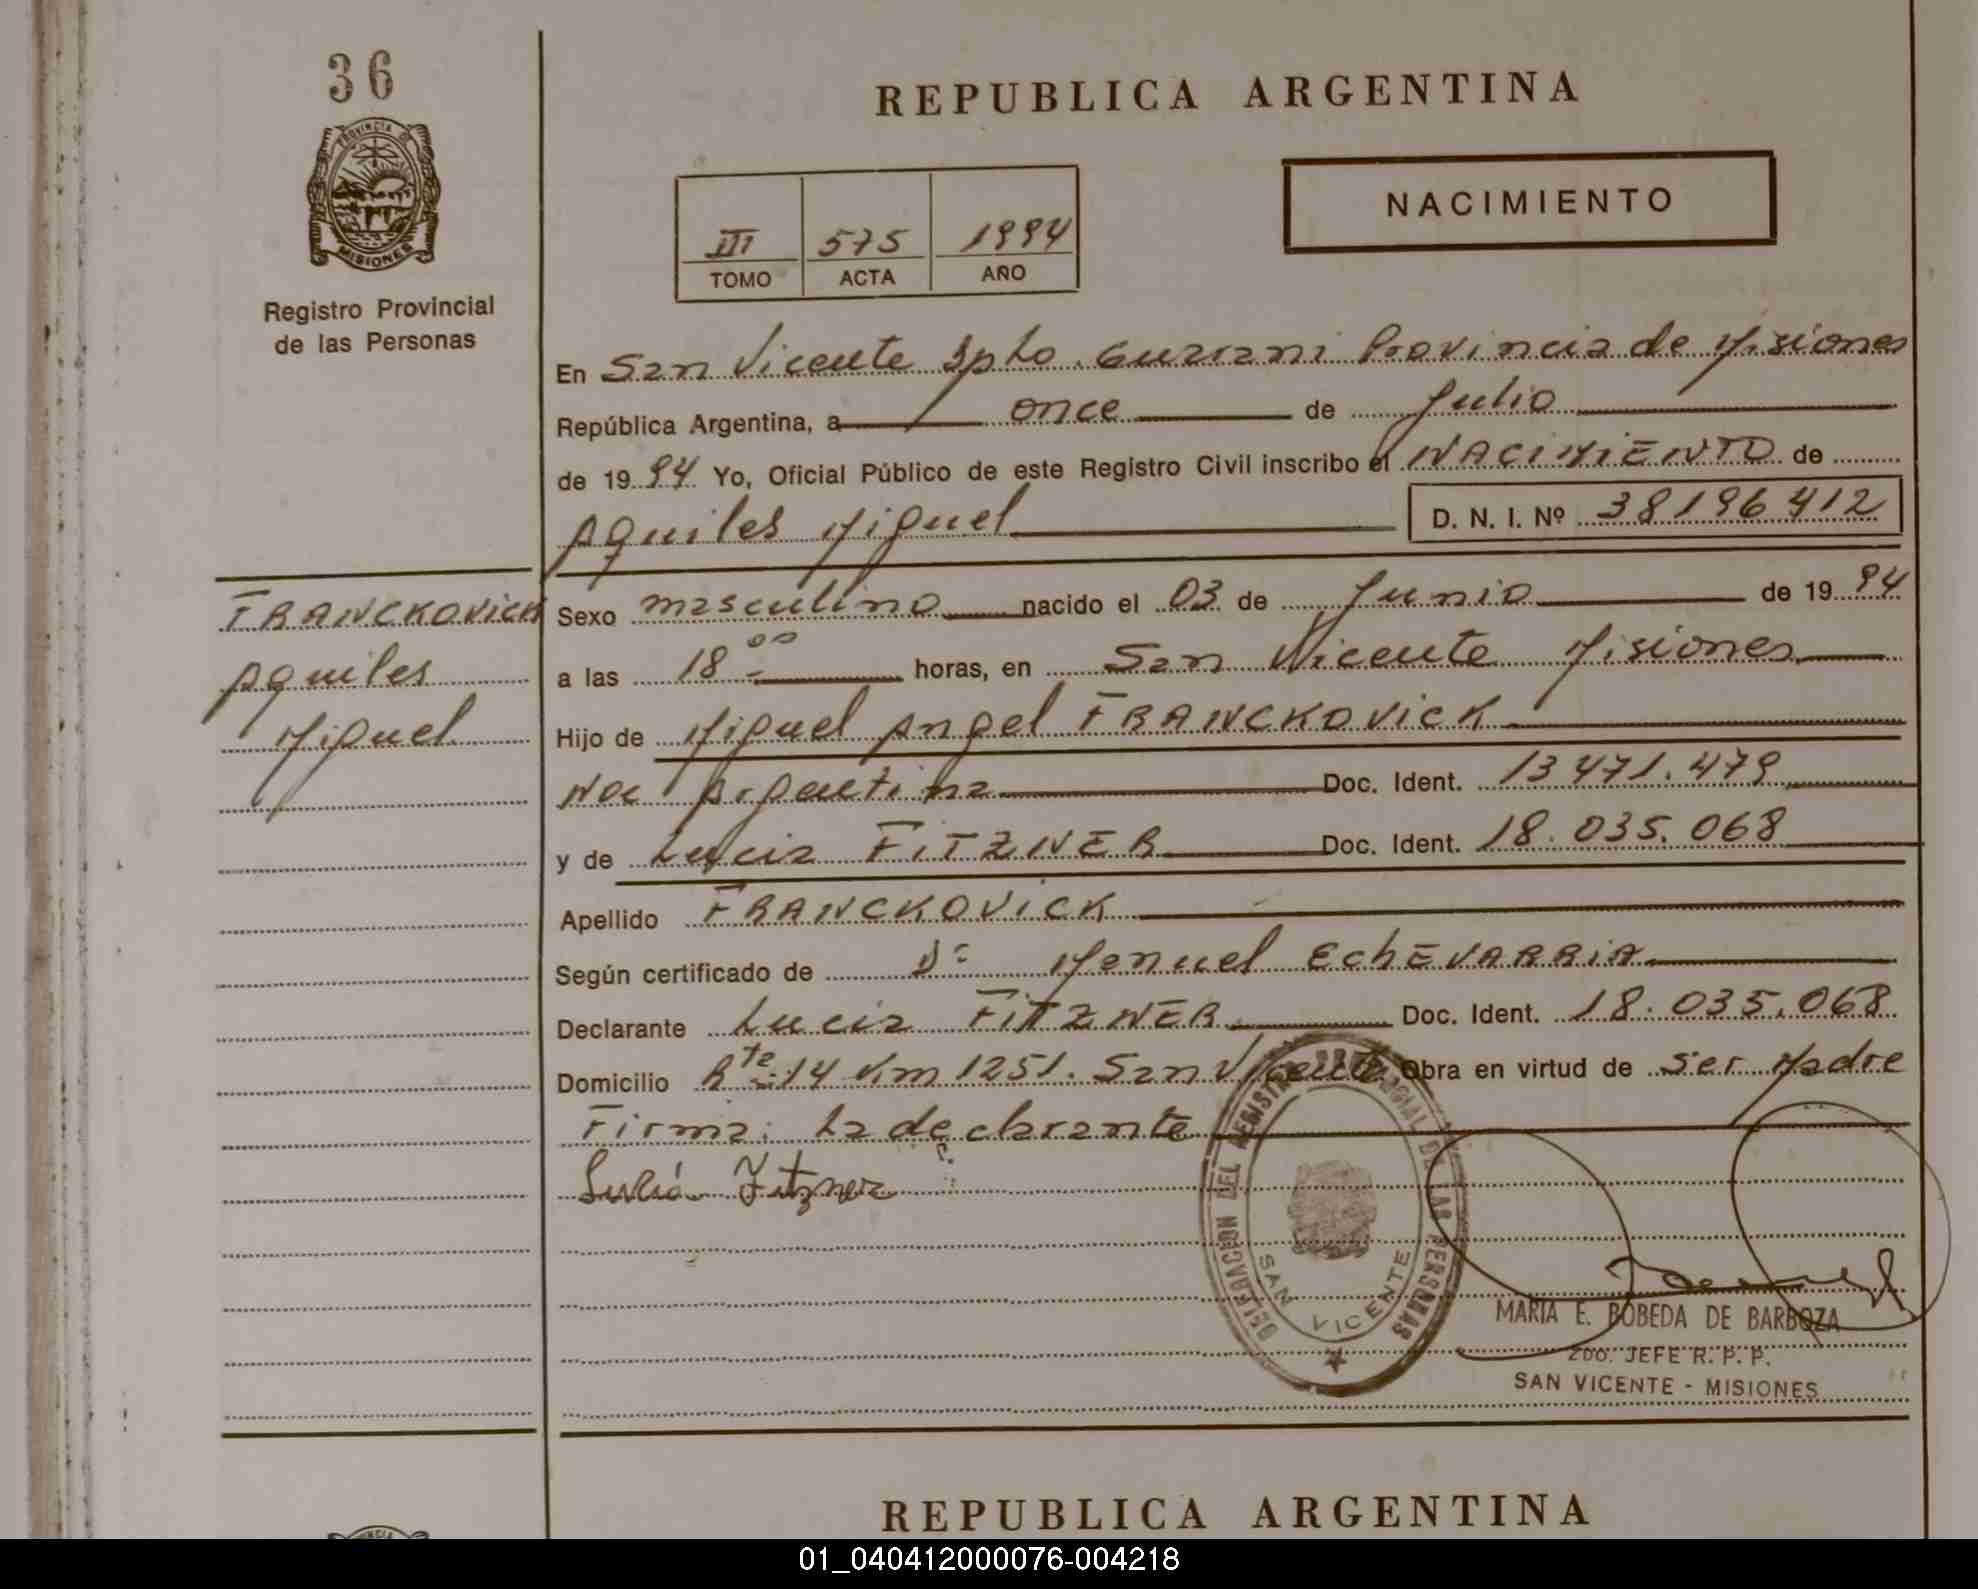 36
PROVINCIA DE
MISIONES
Registro Provincial
de las Personas
REPUBLICA ARGENTINA
NACIMIENTO
III 575 1994
TOMO ACTA AÑO
En San Vicente Dpto. Guarani Provincia de Misiones
República Argentina, a once de Julio
de 1994 Yo, Oficial Público de este Registro Civil inscribo el NACIMIENTO de
Aquiles Miguel D. N. I. Nº 38196412
FRANCKOVICK
Aquiles
Miguel
Sexo masculino nacido el 03 de Junio de 1994
a las 18 00 horas, en San Vicente Misiones
Hijo de Miguel Angel FRANCKOVICK
Nac Argentina Doc. Ident. 13471.479
y de Lucia FITZNER Doc. Ident. 18.035.068
Apellido FRANCKOVICK
Según certificado de Dr Manuel EchEVARRIA
Declarante Lucia FITZNER Doc. Ident. 18.035.068
Domicilio Rta 14 Km 1251. San Vicente Obra en virtud de ser Madre
Firma: La declarante
Fitzner
DELEGACION DEL REGISTRO PROVINCIAL DE LAS PERSONAS
SAN VICENTE
MARIA E. BOBEDA DE BARBOZA
2DO. JEFE R. P. P.
SAN VICENTE - MISIONES
REPUBLICA ARGENTINA
01_040412000076-004218